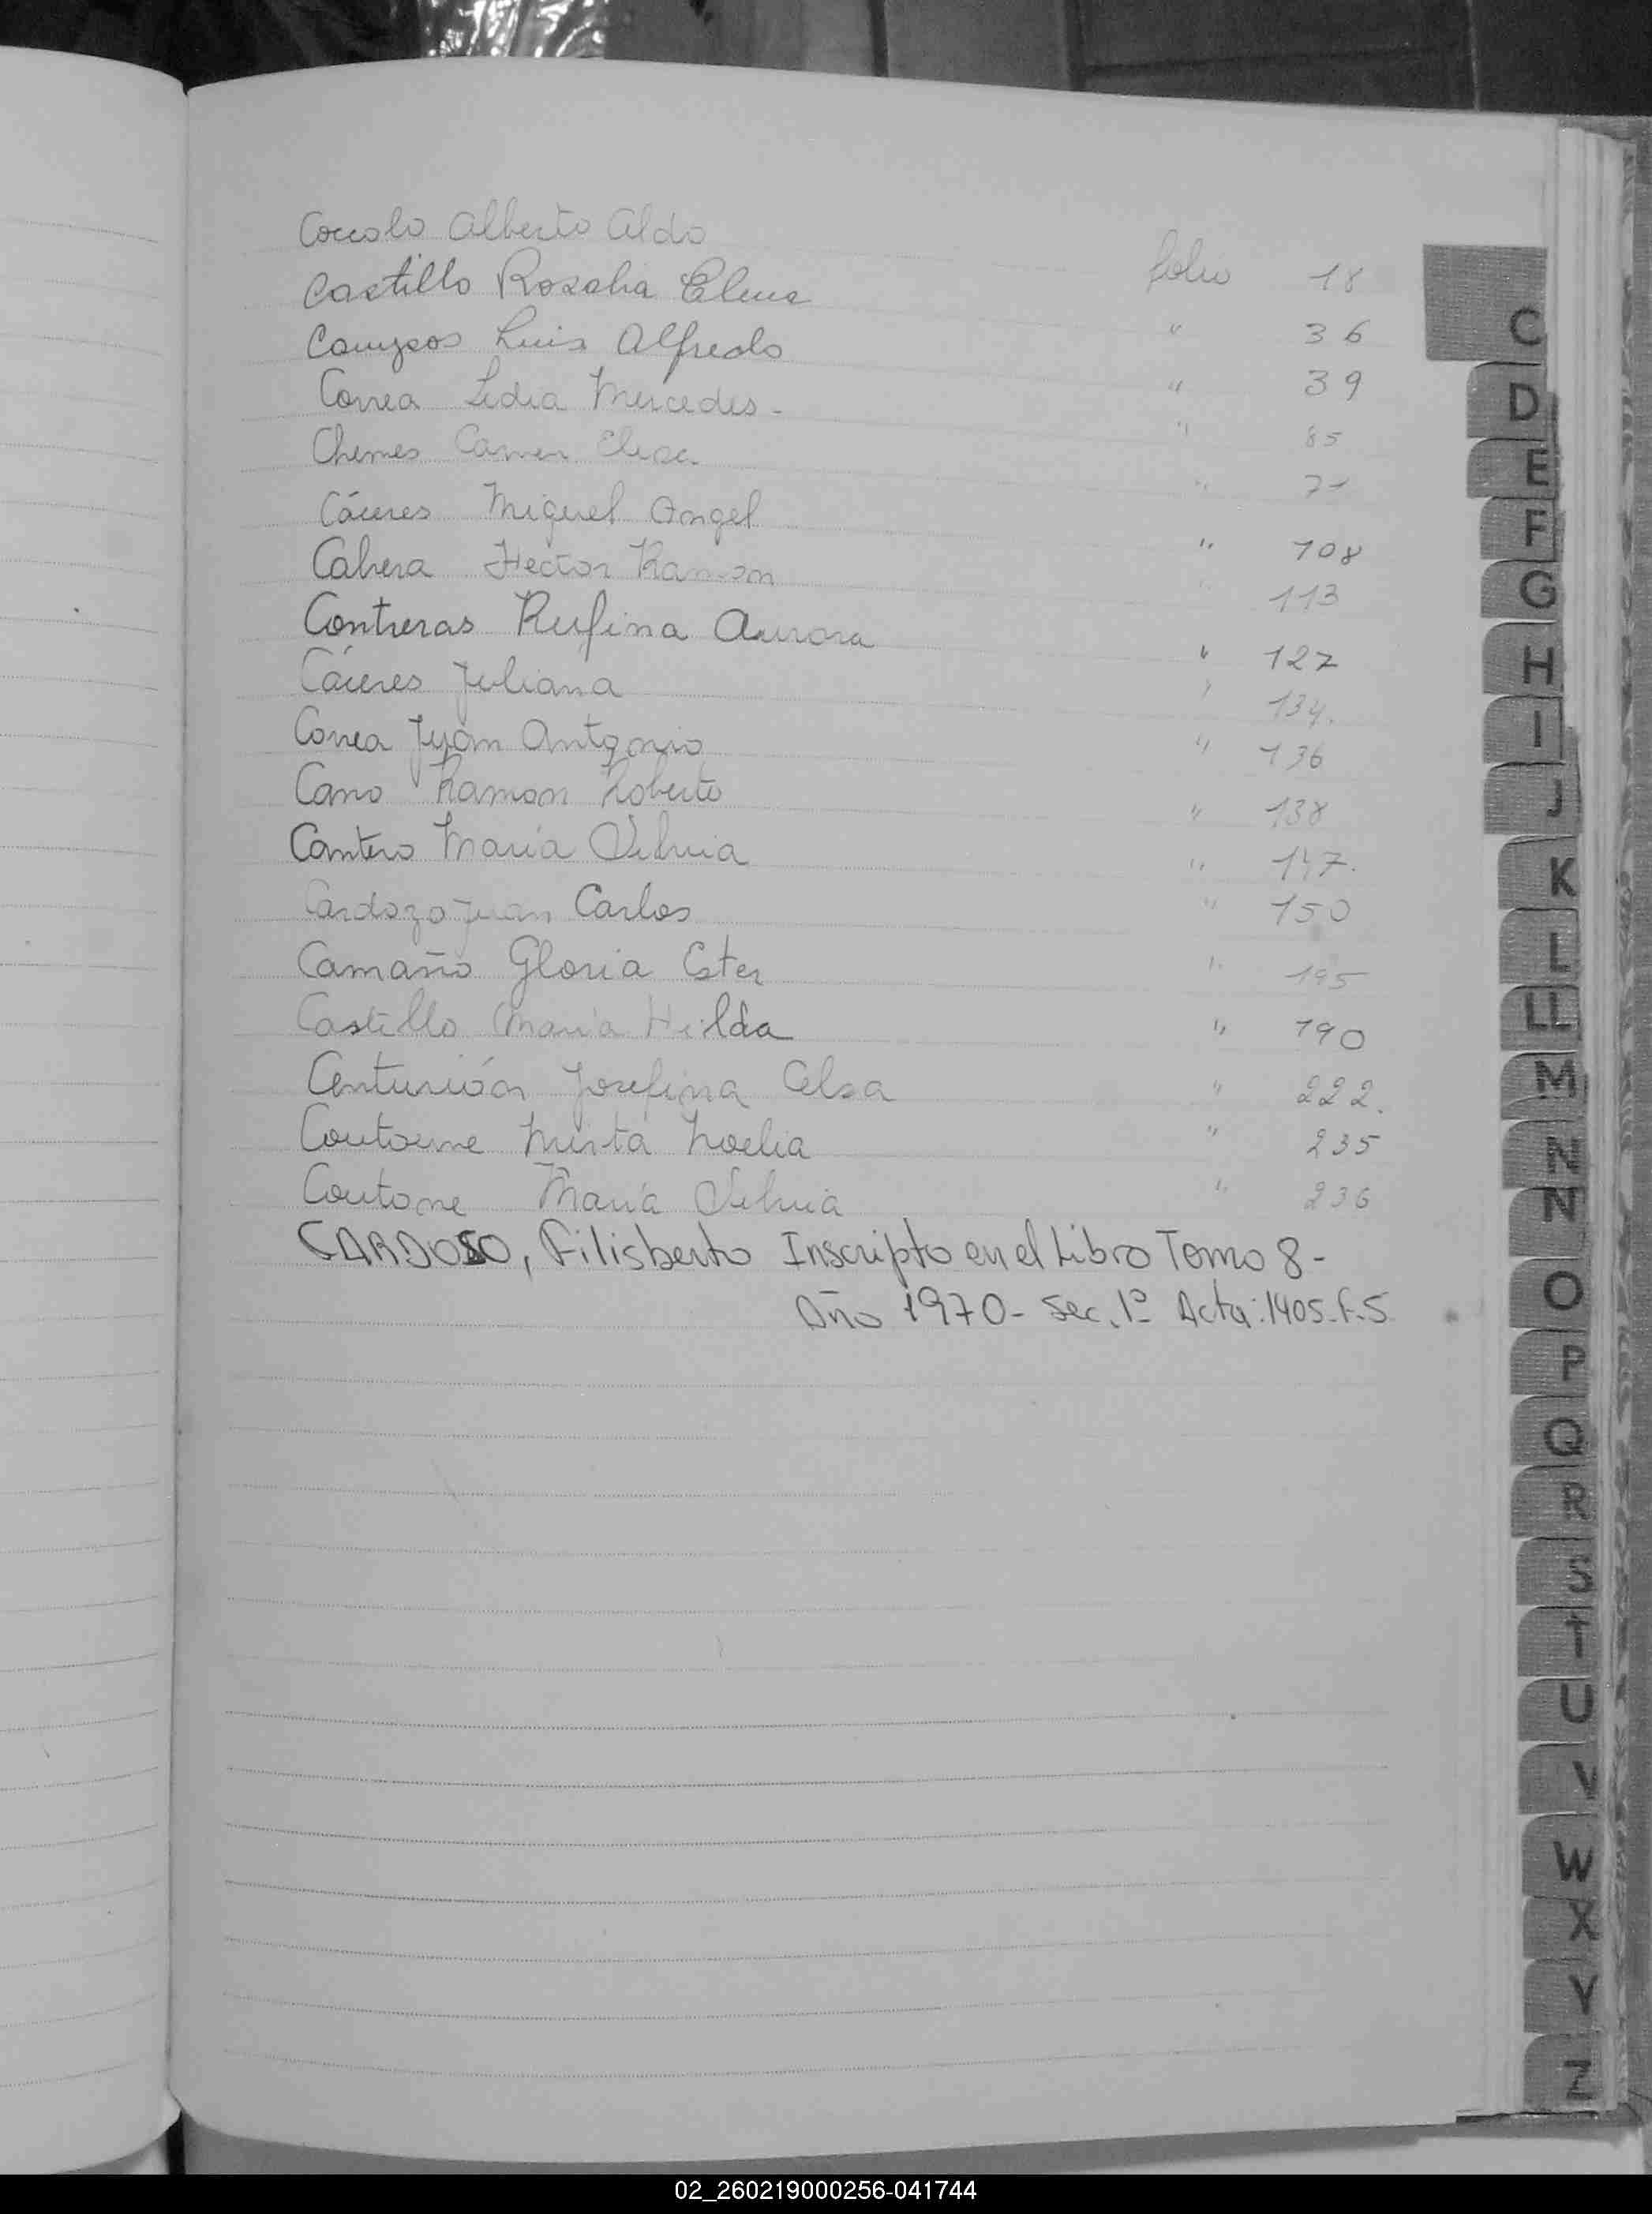 Coccolo Alberto Aldo folio 18
Castillo Rosalia Elena " 36
Campos Luis Alfredo " 39
Correa Lidia Mercedes - " 85
Chemes Carmen Elisa " 71
Cáceres Miguel Angel " 108
Cabrera Hector Ramon " 113
Contreras Rufina Aurora " 127
Cáceres Juliana " 134.
Correa Juan Antonio " 136
Cano Ramon Roberto " 138
Cantero María Silvia " 147.
Cardozo Juan Carlos " 150
Camaño Gloria Ester " 195
Castillo María Hilda " 190
Centurión Josefina Elsa " 222.
Coutorne Mirta Noelia " 235
Coutorne María Silvia " 236
CARDOSO, Filisberto Inscripto en el Libro Tomo 8-
Año 1970- Sec. 1º Acta: 1405-f-5
C
D
E
F
G
H
I
J
K
L
LL
M
N
N
O
P
Q
R
S
T
U
V
W
X
Y
Z
02_260219000256-041744